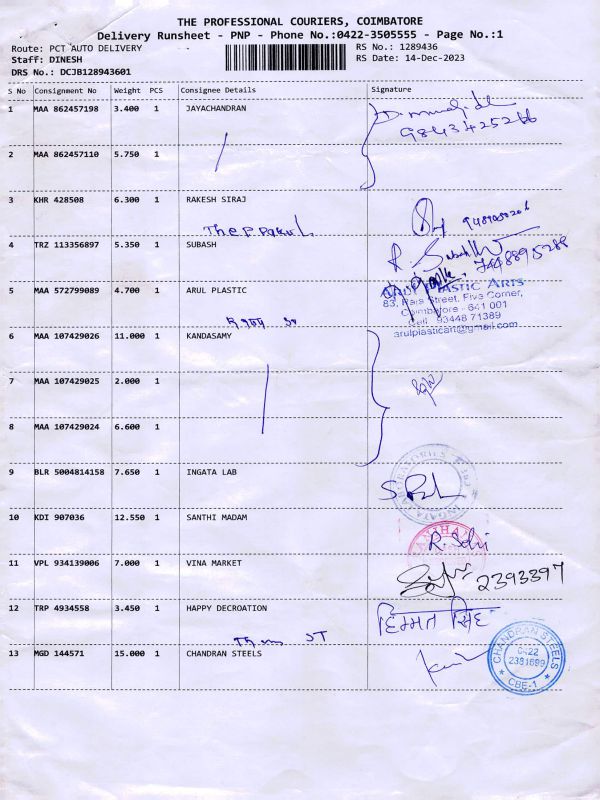 THE PROFESSIONAL COURIERS, COIMBATORE
Delivery Runsheet - PNP - Phone No.:0422-3505555 - Page No.:1
Route: PCT AUTO DELIVERY RS No.: 1289436
Staff: DINESH RS Date: 14-Dec-2023
DRS No.: DCJB128943601
S No Consignment No Weight PCS Consignee Details Signature
1 MAA 862457198 3.400 1 JAYACHANDRAN
9843425266
2 MAA 862457110 5.750 1
3 KHR 428508 6.300 1 RAKESH SIRAJ
4 TRZ 113356897 5.350 1 SUBASH
7448895288
5 MAA 572799089 4.700 1 ARUL PLASTIC
ARUL PLASTIC ARTS
83, Raja Street, Five Corner,
Coimbatore - 641 001
Cell : 93448 71389
arulplasticart@gmail.com
6 MAA 107429026 11.000 1 KANDASAMY
7 MAA 107429025 2.000 1
8 MAA 107429024 6.600 1
9 BLR 5004814158 7.650 1 INGATA LAB
INGATA LABORATORIES
10 KDI 907036 12.550 1 SANTHI MADAM
R. Selvi
11 VPL 934139006 7.000 1 VINA MARKET
2393397
12 TRP 4934558 3.450 1 HAPPY DECROATION
हिम्मत सिंह
13 MGD 144571 15.000 1 CHANDRAN STEELS
CHANDRAN STEELS
0422
2381699
CBE-1